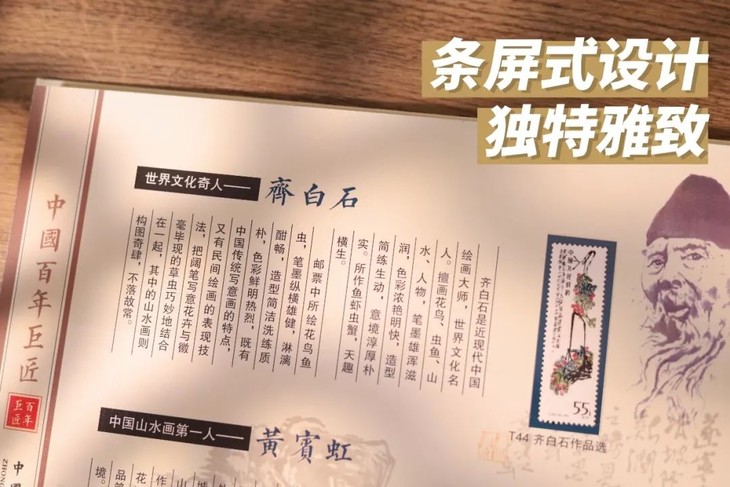 条屏式设计
独特雅致
中國百年巨匠
百年巨匠
世界文化奇人——齊白石
齐白石是近现代中国
绘画大师，世界文化名
人。擅画花鸟、虫鱼、山
水、人物，笔墨雄浑滋
润，色彩浓艳明快，造型
简练生动，意境淳厚朴
实。所作鱼虾虫蟹，天趣
横生。
邮票中所绘花鸟鱼
虫，笔墨纵横雄健，淋漓
酣畅，造型简洁洗练质
朴，色彩鲜明热烈，既有
中国传统写意画的特点，
又有民间绘画的表现技
法，把阔笔写意花卉与微
毫毕现的草虫巧妙地结合
在一起，其中的山水画则
构图奇肆，不落故常。
55
T44 齐白石作品选
中国山水画第一人——黃賓虹
中
ZHONG
境。